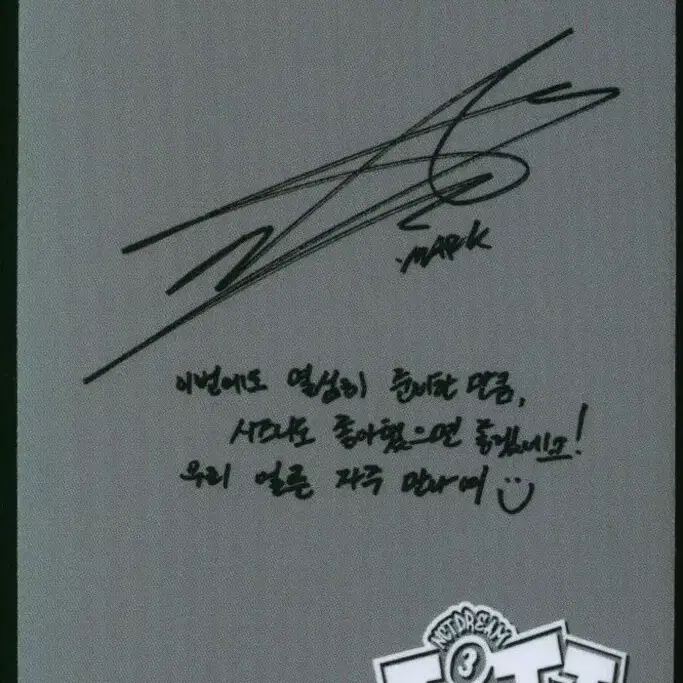 MARK
이번에도 열심히 준비한 만큼,
시즈니도 좋아했으면 좋겠네요!
우리 얼른 자주 만나여
NCT DREAM
3